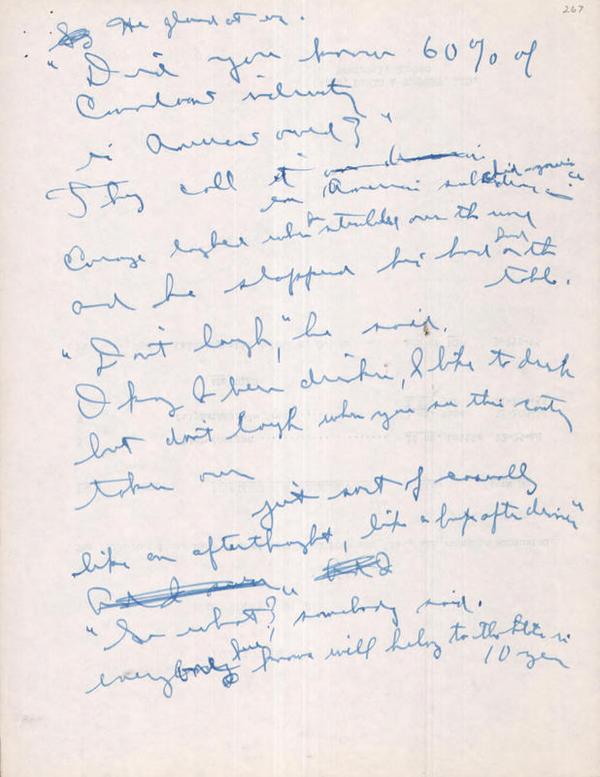 267
He glared at us.
"Did you know 60% of
Canadian industry
is American owned?"
They call it
an American
George laughed when he stumbled over the word
and he slapped his hand on the
table.
"Don't laugh," he said.
I been drinkin, I like to drink
but don't laugh when you see this country
taken over
just sort of casually
like an afterthought, like a burp after dinner"
"So what? somebody said.
everybody knows will belong to the States in
10 years